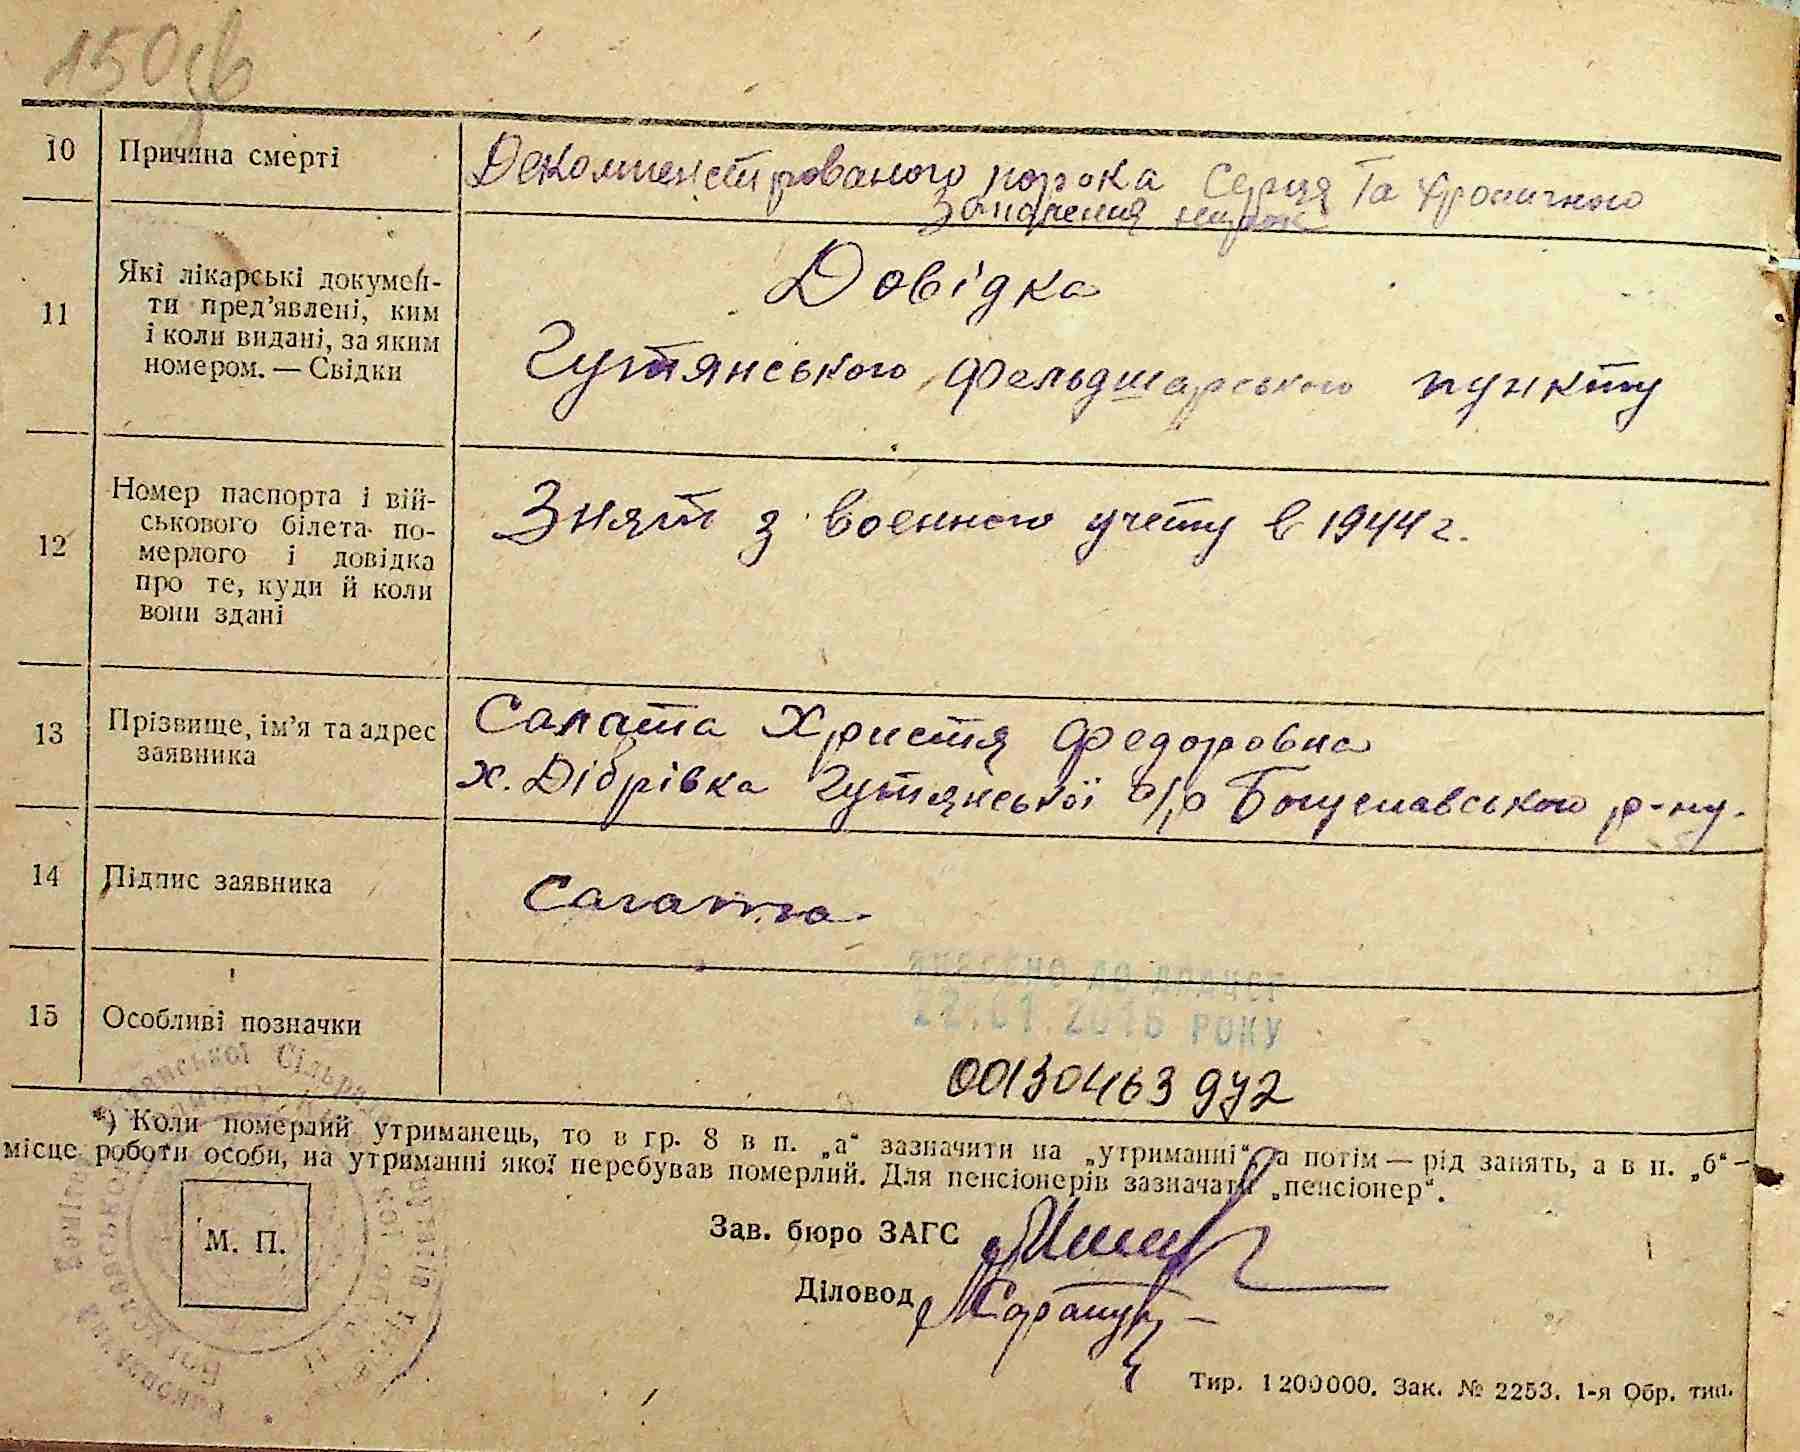 150
10 Причина смерті
Декомпенстрованого порока Серця Та Хроничного
Запалення нирок
11 Які лікарські докумен-
ти пред’явлені, ким
і коли видані, за яким
номером. — Свідки
Довідка
Гутянського фельдшарського пункту
12 Номер паспорта і вій-
ськового білета по-
мерлого і довідка
про те, куди й коли
вони здані
Знят з военного учету в 1944 г.
13 Прізвище, ім’я та адрес
заявника
Салата Христя Федоровна
х. Дібрівка Гутянської с/р Богуславського р-ну.
14 Підпис заявника
Салата
15 Особливі позначки
внесено до ДРАЦСГ
22.01.2016 РОКУ
00130463972
*) Коли померлий утриманець, то в гр. 8 в п. „а“ зазначити на „утриманні“, а потім — рід занять, а в п. „б“ —
місце роботи особи, на утриманні якої перебував померлий. Для пенсіонерів зазначати „пенсіонер“.
М. П.
Зав. бюро ЗАГС
Діловод
Тир. 1200000. Зак. № 2253. 1-я Обр. тип.